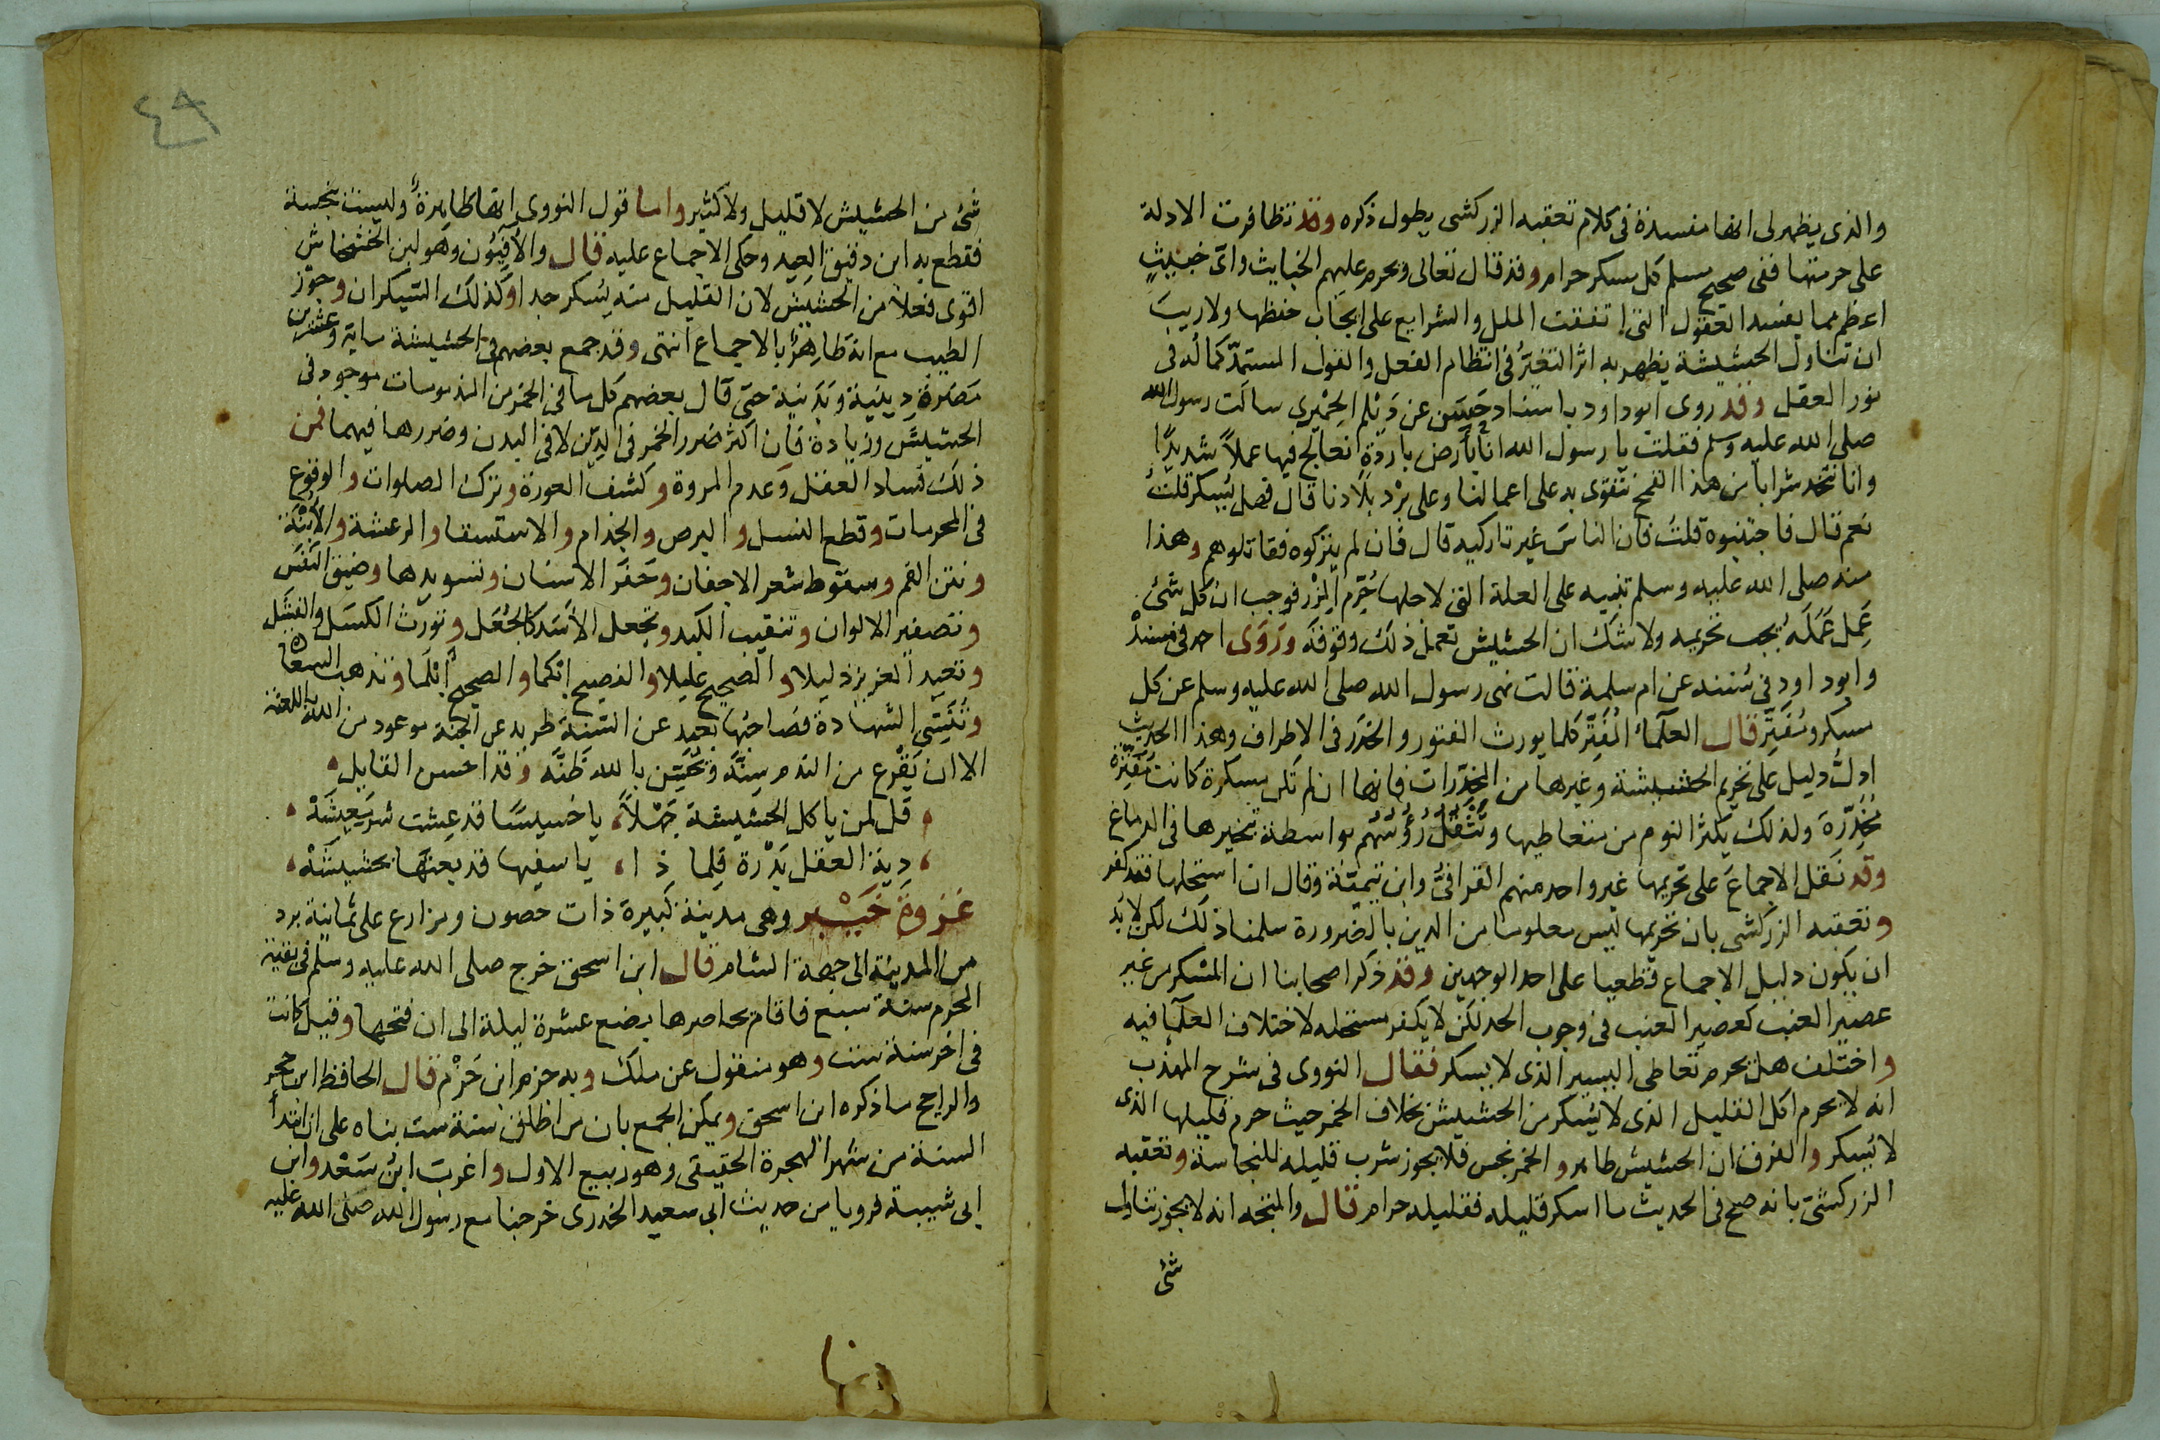 والذى يظهر لى انها مفسدة فى كلام تعقبه الزركشى يطول ذكره وقد تظافرت الادلة
على حرمتها ففى صحيح مسلم كل مسكر حرام وقد قال تعالى ويحرم عليهم الخبايث واى خبيث
اعظم مما يفسد العقول التى اتفقت الملل والشرايع على ايجاب حفظها ولا ريب
ان تناول الحشيشة يظهر به اثر التغيّر فى انتظام الفعل والقول المستمدّ كماله فى
نور العقل وقد روى ابو داود باسناد حسن عن ديلم الحميرى سالت رسول الله
صلى الله عليه وسلم فقلت يا رسول الله انا بارض باردة نعالج فيها عملاً شديدًا
وانا نتخد شرابا من هذا القمح نتقوى به على اعمالنا وعلى برد بلادنا قال فهل يسكر قلت
نعم قال فاجتنبوه قلت فان الناس غير تاركيه قال فان لم يتركوه فقاتلوهم وهذا
منه صلى الله عليه وسلم تنبيه على العلة التى لاجلها حُرّم المزر فوجب ان كل شئ
عَمِل عَمَلَه يجب تحريمه ولا شك ان الحشيش تعمل ذلك وفوقه ورَوَى احمد فى مسنده
وابو داود فى سننه عن ام سلمة قالت نهى رسول الله صلى الله عليه وسلم عن كل
مسكر ومُفَتِّر قال العلماء المُفَتِّر كلما يورث الفتور والخدر فى الاطراف وهذا الحديث
ادلّ دليل على تحريم الحشيشة وغيرها من المخدّرات فانها ان لم تكن مسكرة كانت مفترة
مُخَدِّرَة ولذلك يكثر النوم من متعاطيها وتَثْقُل رُؤُسُهُم بواسطة تبخيرها فى الدماغ
وقد نَقَل الاجماع على تحريمها غير واحد منهم القرافىّ وابن تيميّة وقال ان استحلها فقد كفر
وتعقبه الزركشى بان تحريمها ليس معلوما من الدين بالضرورة سلمنا ذلك لكن لا بد
ان يكون دليل الاجماع قطعيا على احد الوجهين وقد ذكر اصحابنا ان المسكر من غير
عصير العنب كعصير العنب فى وجوب الحد لكن لا يكفر مستحله لاختلاف العلما فيه
واختلف هل يحرم تعاطى اليسير الذى لا يسكر فقال النووى فى شرح المهذب
انه لا يحرم اكل القليل الذى لا يُسكر من الحشيش بخلاف الخمر حيث حرم قليلها الذى
لا يُسكر والفرق ان الحشيش طاهر والخمر نجس فلا يجوز شرب قليله للنجاسة وتعقبه
الزركشى بانه صح فى الحديث ما اسكر قليله فقليله حرام قال والمتجه انه لا يجوز تناول
شئ
٤٨
شئ من الحشيش لا قليل ولا كثير واما قول النووى انها طاهرة وليست بنجسة
فقطع به ابن دقيق العيد وحكى الاجماع عليه قال والافيون وهو لبن الخشخاش
اقوى فعلا من الحشيش لان القليل منه يسكر جدا وكذلك السيكران وجوز
الطيب مع انه طاهر بالاجماع انتهى وقد جمع بعضهم فى الحشيشة ماية وعشرين
مَضَرَة دينية وبَدَنية حتى قال بعضهم كل ما فى الخمر من المذمومات موجود فى
الحشيش وزيادة فان اكثر ضرر الخمر فى الدين لا فى البدن وضررها فيهما فمن
ذلك فساد العقل وعدم المروة وكشف العورة وترك الصلوات والوقوع
فى المحرمات وقطع النسل والبرص والجذام والاستسقا والرعشة والابنة
ونتن الفم وسقوط شعر الاجفان وحَفَر الاسنان وتسويدها وضيق النَفَس
وتصفير الالوان وتنقيب الكبد وتجعل الاسَد كالجُعَل وتورث الكسَل والفشَل
وتعيد العزيز ذليلا والصحيح عليلا والفصيح ابكما والصحيح ابلما وتذهب السعادة
وتُنْسِى الشهادة فصاحبُها بعيد عن السنة طريد عن الجنة موعود من الله باللعنة
الا ان يَقْرع من الندم سِنَّه ويُحَسِّن بالله ظَنَّه وقد احسن القايل
قل لمن ياكل الحشيشة جَهْلاً، يا خسيسًا قد عِشت شر معيشَةْ
دية العقل بَدْرة فلما ذا، يا سفيها قد بعتها بحشيشَةْ
غَزوة خَيْبر وهى مدينة كبيرة ذات حصون ومزارع على ثمانية برد
من المدينة الى جهة الشام قال ابن اسحق خرج صلى الله عليه وسلم فى بقية
المحرم سنة سبع فاقام يحاصرها بضع عشرة ليلة الى ان فتحها وقيل كانت
فى اخر سنة ست وهو منقول عن ملك وبه جزم ابن حَزْم قال الحافظ ابن حجر
والراجح ما ذكره ابن اسحق ويمكن الجمع بان من اطلق سنة ست بناه على ان ابتدا
السنة من شهر الهجرة الحقيقى وهو ربيع الاول واغرب ابن سَعْد وابن
ابى شيبة فرويا من حديث ابى سعيد الخدرى خرجنا مع رسول الله صلى الله عليه